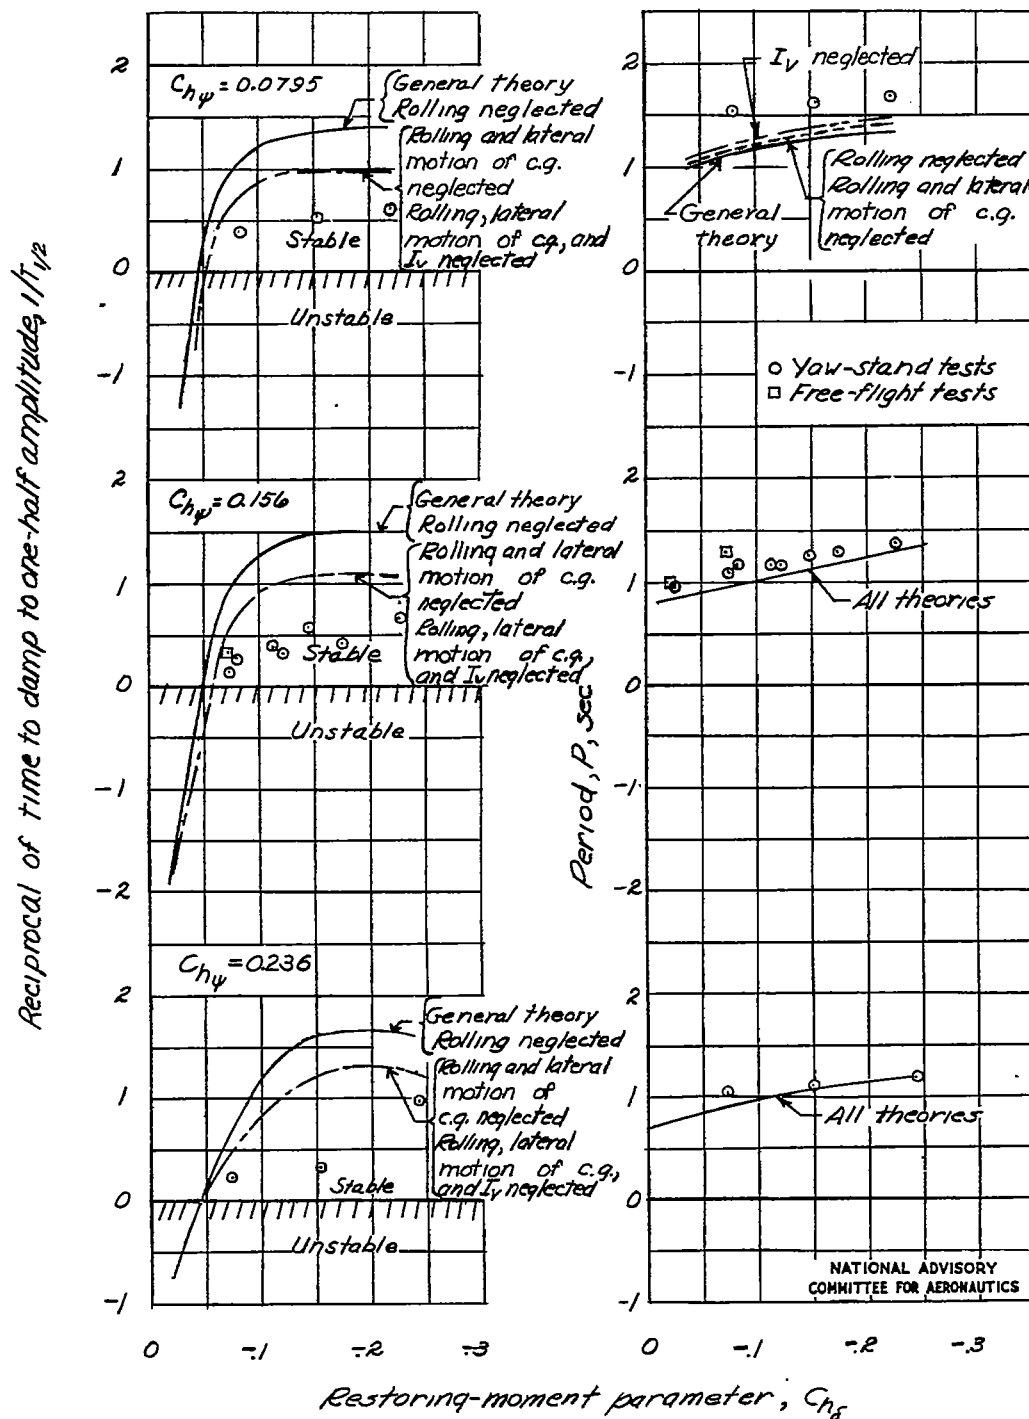 Reciprocal of time to damp to one-half amplitude, 1/T1/2
2
1
0
-1
C_hψ = 0.0795
General theory
Rolling neglected
Rolling and lateral
motion of c.g.
neglected
Rolling, lateral
motion of c.g., and
Iv neglected
Stable
Unstable
2
1
0
-1
-2
C_hψ = 0.156
General theory
Rolling neglected
Rolling and lateral
motion of c.g.
neglected
Rolling, lateral
motion of c.g.,
and Iv neglected
Stable
Unstable
2
1
0
-1
C_hψ = 0.236
General theory
Rolling neglected
Rolling and lateral
motion of
c.g. neglected
Rolling, lateral
motion of c.g.,
and Iv neglected
Stable
Unstable
0 -.1 -.2 -.3
Period, P, sec
2
1
0
-1
Iv neglected
Rolling neglected
Rolling and lateral
motion of c.g.
neglected
General
theory
Yaw-stand tests
Free-flight tests
2
1
0
-1
-2
All theories
2
1
0
-1
All theories
NATIONAL ADVISORY
COMMITTEE FOR AERONAUTICS
0 -.1 -.2 -.3
Restoring-moment parameter, C_hδ